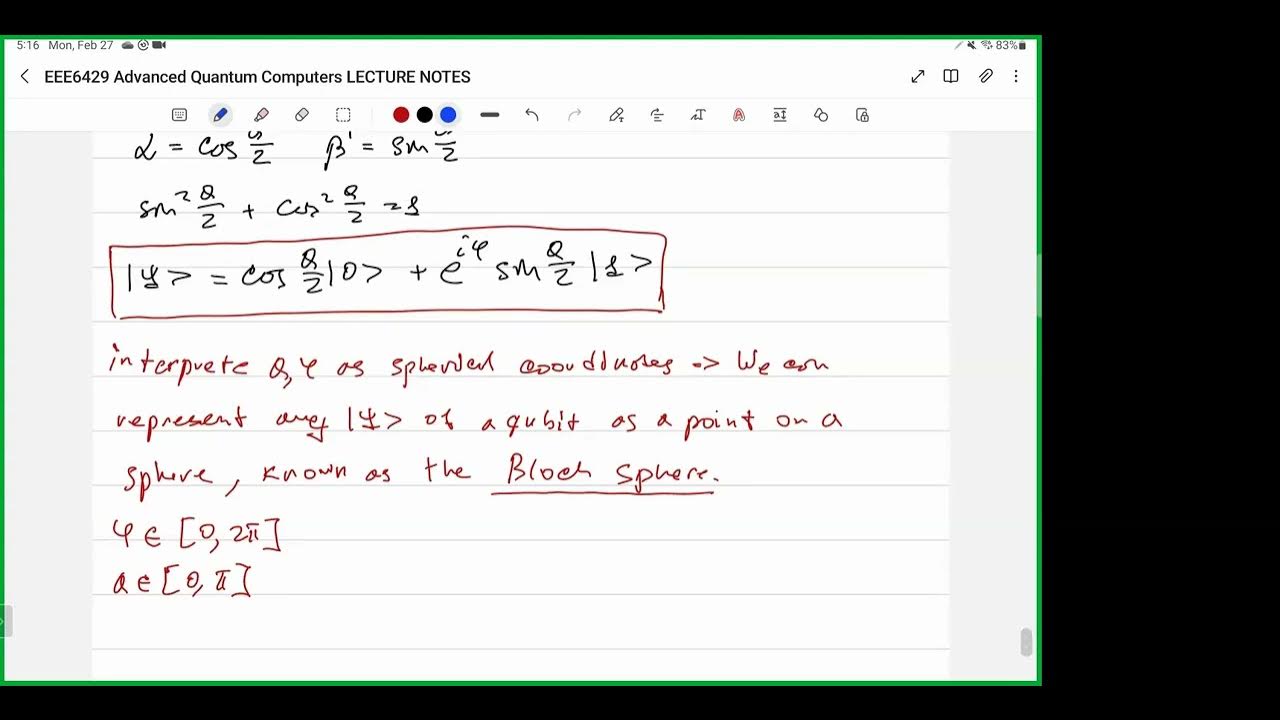 5:16 Mon, Feb 27
83%
EEE6429 Advanced Quantum Computers LECTURE NOTES
α = cos θ/2   β' = sin θ/2
sin² θ/2 + cos² θ/2 = 1
|Ψ> = cos θ/2 |0> + e^{iφ} sin θ/2 |1>
interprete θ, φ as spherical coordinates -> We can
represent any |Ψ> of a qubit as a point on a
sphere, known as the Bloch sphere.
φ ∈ [0, 2π]
θ ∈ [0, π]